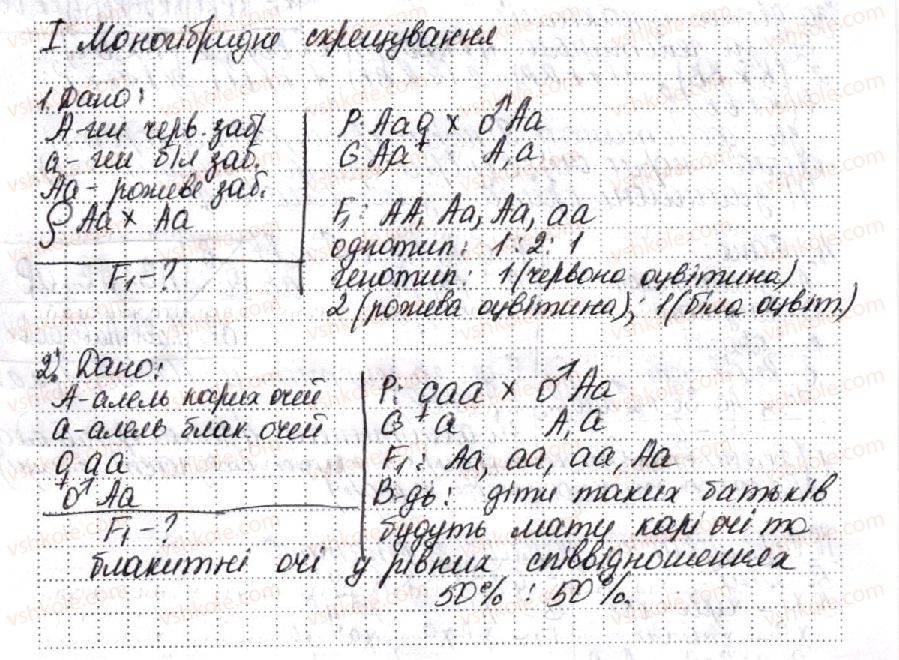 І Моногібридне схрещування
1. Дано:
А-ген черв. заб.
а - ген біл заб.
Аа - рожеве заб.
♀ Аа × Аа
F₁ - ?
Р: Аа ♀ × ♂ Аа
G: А,а А,а
F₁: АА, Аа, Аа, аа
1:2:1
генотип: 1 (червона оцвітина)
2 (рожева оцвітина); 1 (біла оцвіт.)
2. Дано:
А-алель карих очей
а-алель блак. очей
♀ аа
♂ Аа
F₁ - ?
Р: ♀ аа × ♂ Аа
G а А,а
F₁: Аа, аа, аа, Аа
В-дь: діти таких батьків
будуть мати карі очі та
блакитні очі у рівних співвідношеннях
50% : 50%.
vshkole.com